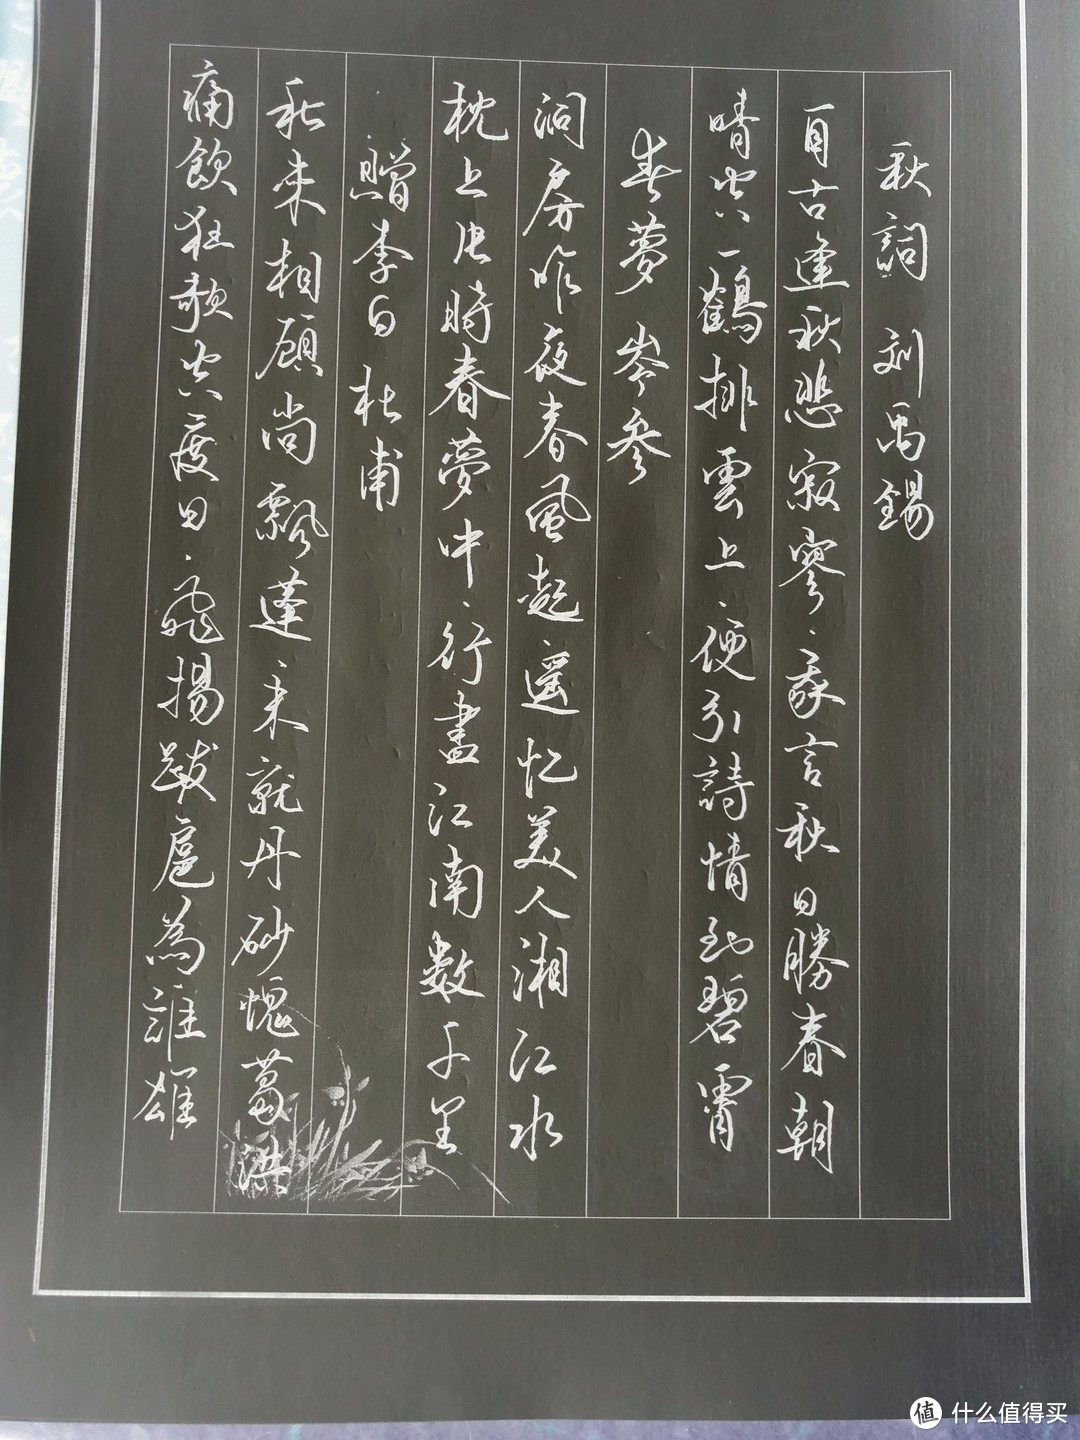 秋詞 刘禹錫
自古逢秋悲寂寥、我言秋日勝春朝
晴空一鶴排雲上、便引詩情到碧霄
春夢 岑参
洞房昨夜春風起遥忆美人湘江水
枕上片時春夢中、行盡江南數千里
贈李白 杜甫
秋来相顾尚飄蓬未就丹砂愧葛洪
痛飲狂歌空度日、飛揚跋扈為誰雄
值 什么值得买